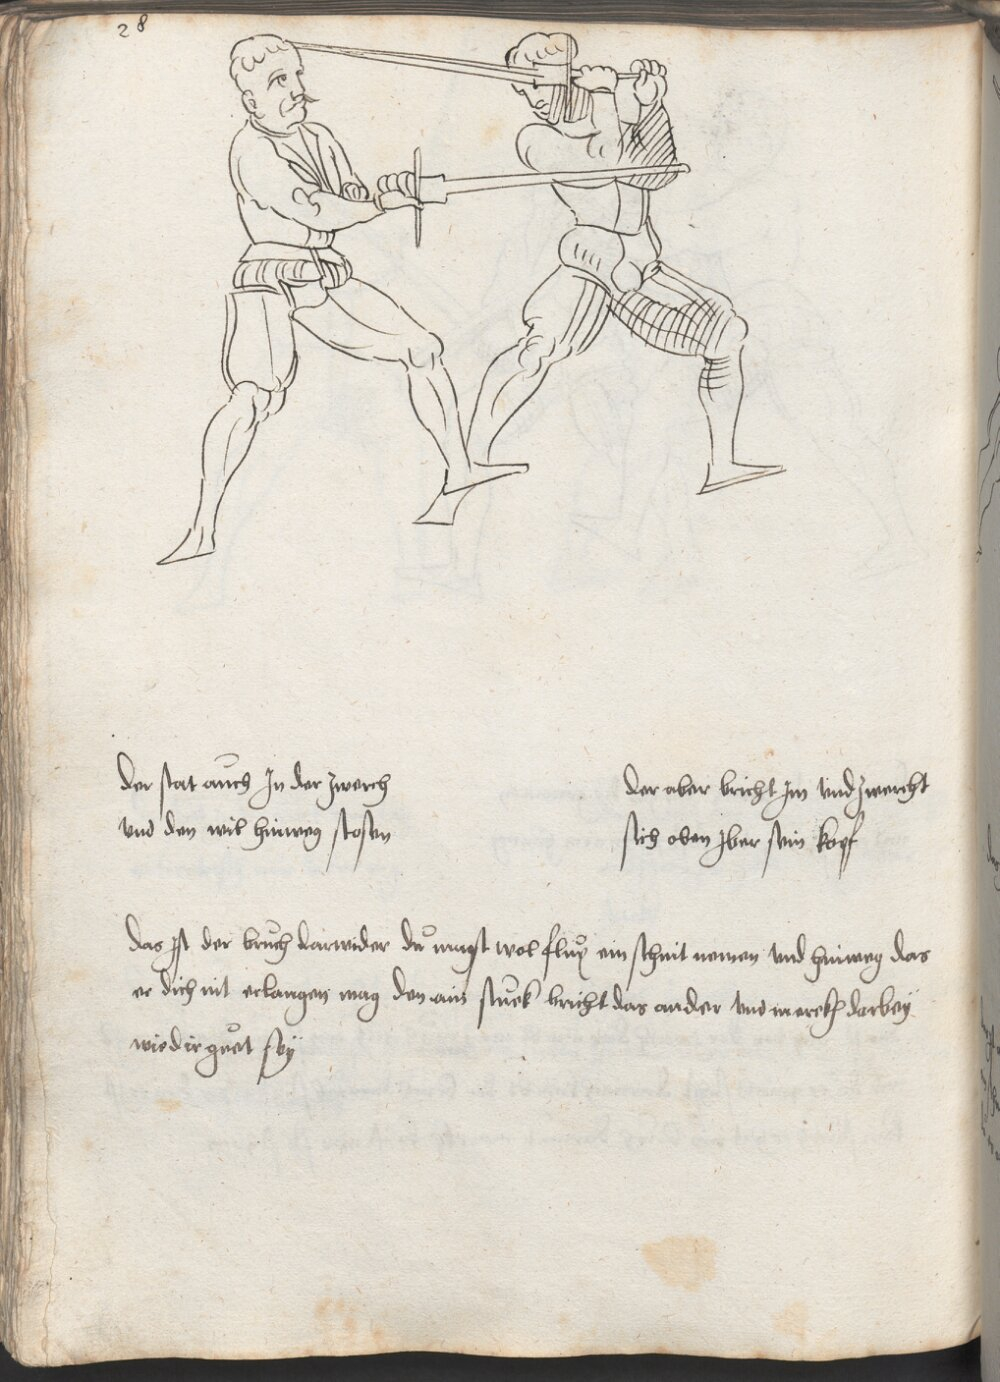 28
der stat auch In der zwerch
und den wil hinweg stosen
der aber bricht Im und zwercht
sich oben Iber sein kopf
das Ist der bruch darwider du magst wol flux ein schnit nemen und hinweg das
er dich nit erlangen mag den ain stuck bricht das ander und merckh darbey
wie dir guet sey